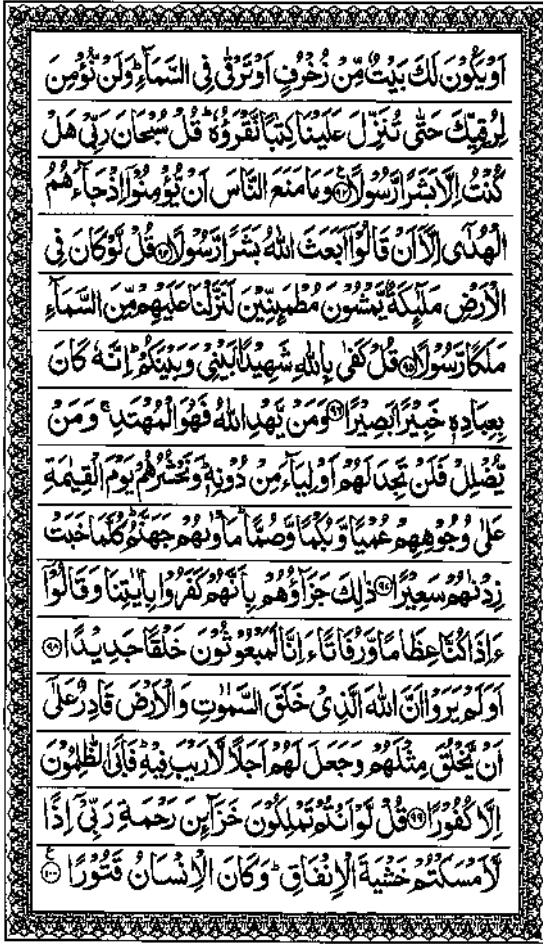 اَوْ يَكُوْنَ لَكَ بَيْتٌ مِّنْ زُخْرُفٍ اَوْ تَرْقٰى فِى السَّمَآءِ ؕ وَلَنْ نُّؤْمِنَ
لِرُقِيِّكَ حَتّٰى تُنَزِّلَ عَلَيْنَا كِتٰبًا نَّقْرَؤُهٗ ؕ قُلْ سُبْحَانَ رَبِّىْ هَلْ
كُنْتُ اِلَّا بَشَرًا رَّسُوْلًا ﴿۹۳﴾ وَمَا مَنَعَ النَّاسَ اَنْ يُّؤْمِنُوْۤا اِذْ جَآءَهُمُ
الْهُدٰٓى اِلَّاۤ اَنْ قَالُوْۤا اَبَعَثَ اللّٰهُ بَشَرًا رَّسُوْلًا ﴿۹۴﴾ قُلْ لَّوْ كَانَ فِى
الْاَرْضِ مَلٰٓئِكَةٌ يَّمْشُوْنَ مُطْمَئِنِّيْنَ لَنَزَّلْنَا عَلَيْهِمْ مِّنَ السَّمَآءِ
مَلَكًا رَّسُوْلًا ﴿۹۵﴾ قُلْ كَفٰى بِاللّٰهِ شَهِيْدًۢا بَيْنِىْ وَبَيْنَكُمْ ؕ اِنَّهٗ كَانَ
بِعِبَادِهٖ خَبِيْرًۢا بَصِيْرًا ﴿۹۶﴾ وَمَنْ يَّهْدِ اللّٰهُ فَهُوَ الْمُهْتَدِ ۚ وَمَنْ
يُّضْلِلْ فَلَنْ تَجِدَ لَهُمْ اَوْلِيَآءَ مِنْ دُوْنِهٖ ؕ وَنَحْشُرُهُمْ يَوْمَ الْقِيٰمَةِ
عَلٰى وُجُوْهِهِمْ عُمْيًا وَّبُكْمًا وَّصُمًّا ؕ مَاْوٰىهُمْ جَهَنَّمُ ؕ كُلَّمَا خَبَتْ
زِدْنٰهُمْ سَعِيْرًا ﴿۹۷﴾ ذٰلِكَ جَزَآؤُهُمْ بِاَنَّهُمْ كَفَرُوْا بِاٰيٰتِنَا وَقَالُوْۤا
ءَاِذَا كُنَّا عِظَامًا وَّرُفَاتًا ءَاِنَّا لَمَبْعُوْثُوْنَ خَلْقًا جَدِيْدًا ﴿۹۸﴾
اَوَلَمْ يَرَوْا اَنَّ اللّٰهَ الَّذِىْ خَلَقَ السَّمٰوٰتِ وَالْاَرْضَ قَادِرٌ عَلٰٓى
اَنْ يَّخْلُقَ مِثْلَهُمْ وَجَعَلَ لَهُمْ اَجَلًا لَّا رَيْبَ فِيْهِ ؕ فَاَبَى الظّٰلِمُوْنَ
اِلَّا كُفُوْرًا ﴿۹۹﴾ قُلْ لَّوْ اَنْتُمْ تَمْلِكُوْنَ خَزَآئِنَ رَحْمَةِ رَبِّىْۤ اِذًا
لَّاَمْسَكْتُمْ خَشْيَةَ الْاِنْفَاقِ ؕ وَكَانَ الْاِنْسَانُ قَتُوْرًا ﴿۱۰۰﴾ ع